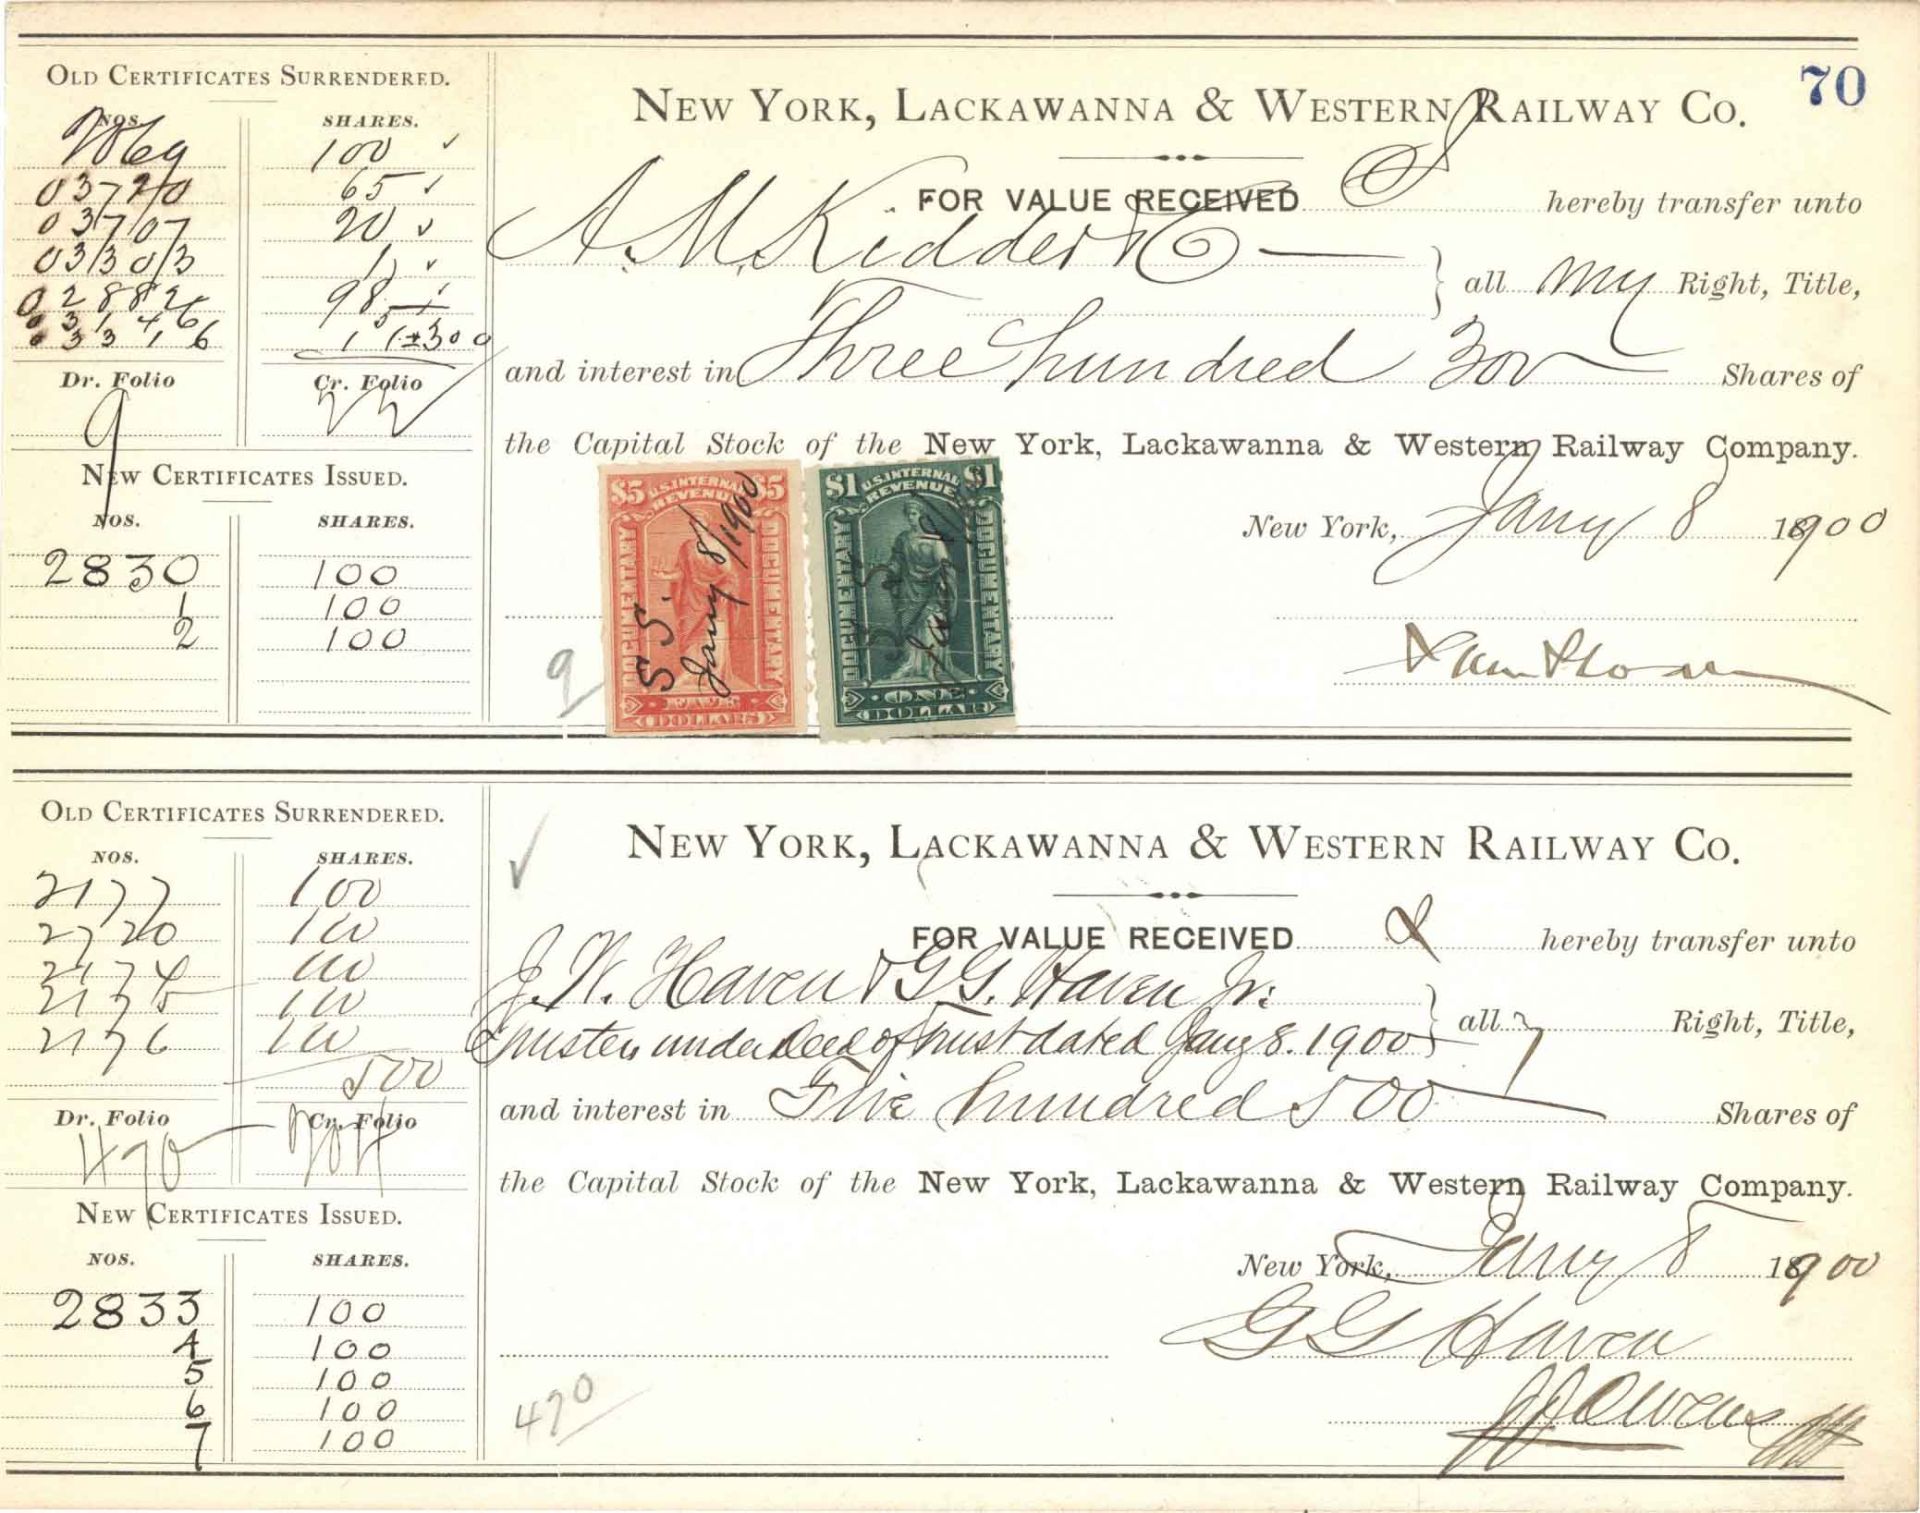 70
OLD CERTIFICATES SURRENDERED.
NOS. SHARES.
100
03720 65
03707 20
03303 1
02882 98
03146
03316 1 300
Dr. Folio Cr. Folio
9
NEW CERTIFICATES ISSUED.
NOS. SHARES.
2830 100
1 100
2 100
NEW YORK, LACKAWANNA & WESTERN RAILWAY CO.
FOR VALUE RECEIVED I hereby transfer unto
A. M. Kidder & Co
all my Right, Title,
and interest in Three hundred 300 Shares of
the Capital Stock of the New York, Lackawanna & Western Railway Company.
New York, Jany 8 1900
$5 U.S. INTERNAL REVENUE $5
DOCUMENTARY DOCUMENTARY
DOLLARS
S S.
Jany 8/1900
$1 U.S. INTERNAL REVENUE $1
DOCUMENTARY DOCUMENTARY
ONE
DOLLAR
S S
Jany 8/1900
Sam Sloan
9
OLD CERTIFICATES SURRENDERED.
NOS. SHARES.
2177 100
2720 100
2174 100
2175 100
2176 100
500
Dr. Folio Cr. Folio
470
NEW CERTIFICATES ISSUED.
NOS. SHARES.
2833 100
4 100
5 100
6 100
7 100
NEW YORK, LACKAWANNA & WESTERN RAILWAY CO.
FOR VALUE RECEIVED I hereby transfer unto
J. W. Haven & G. G. Haven Jr.
Trustees under Deed of Trust dated Jany 8. 1900
all my Right, Title,
and interest in Five hundred 500 Shares of
the Capital Stock of the New York, Lackawanna & Western Railway Company.
New York, Jany 8 1900
G G Haven
J J Owens
470